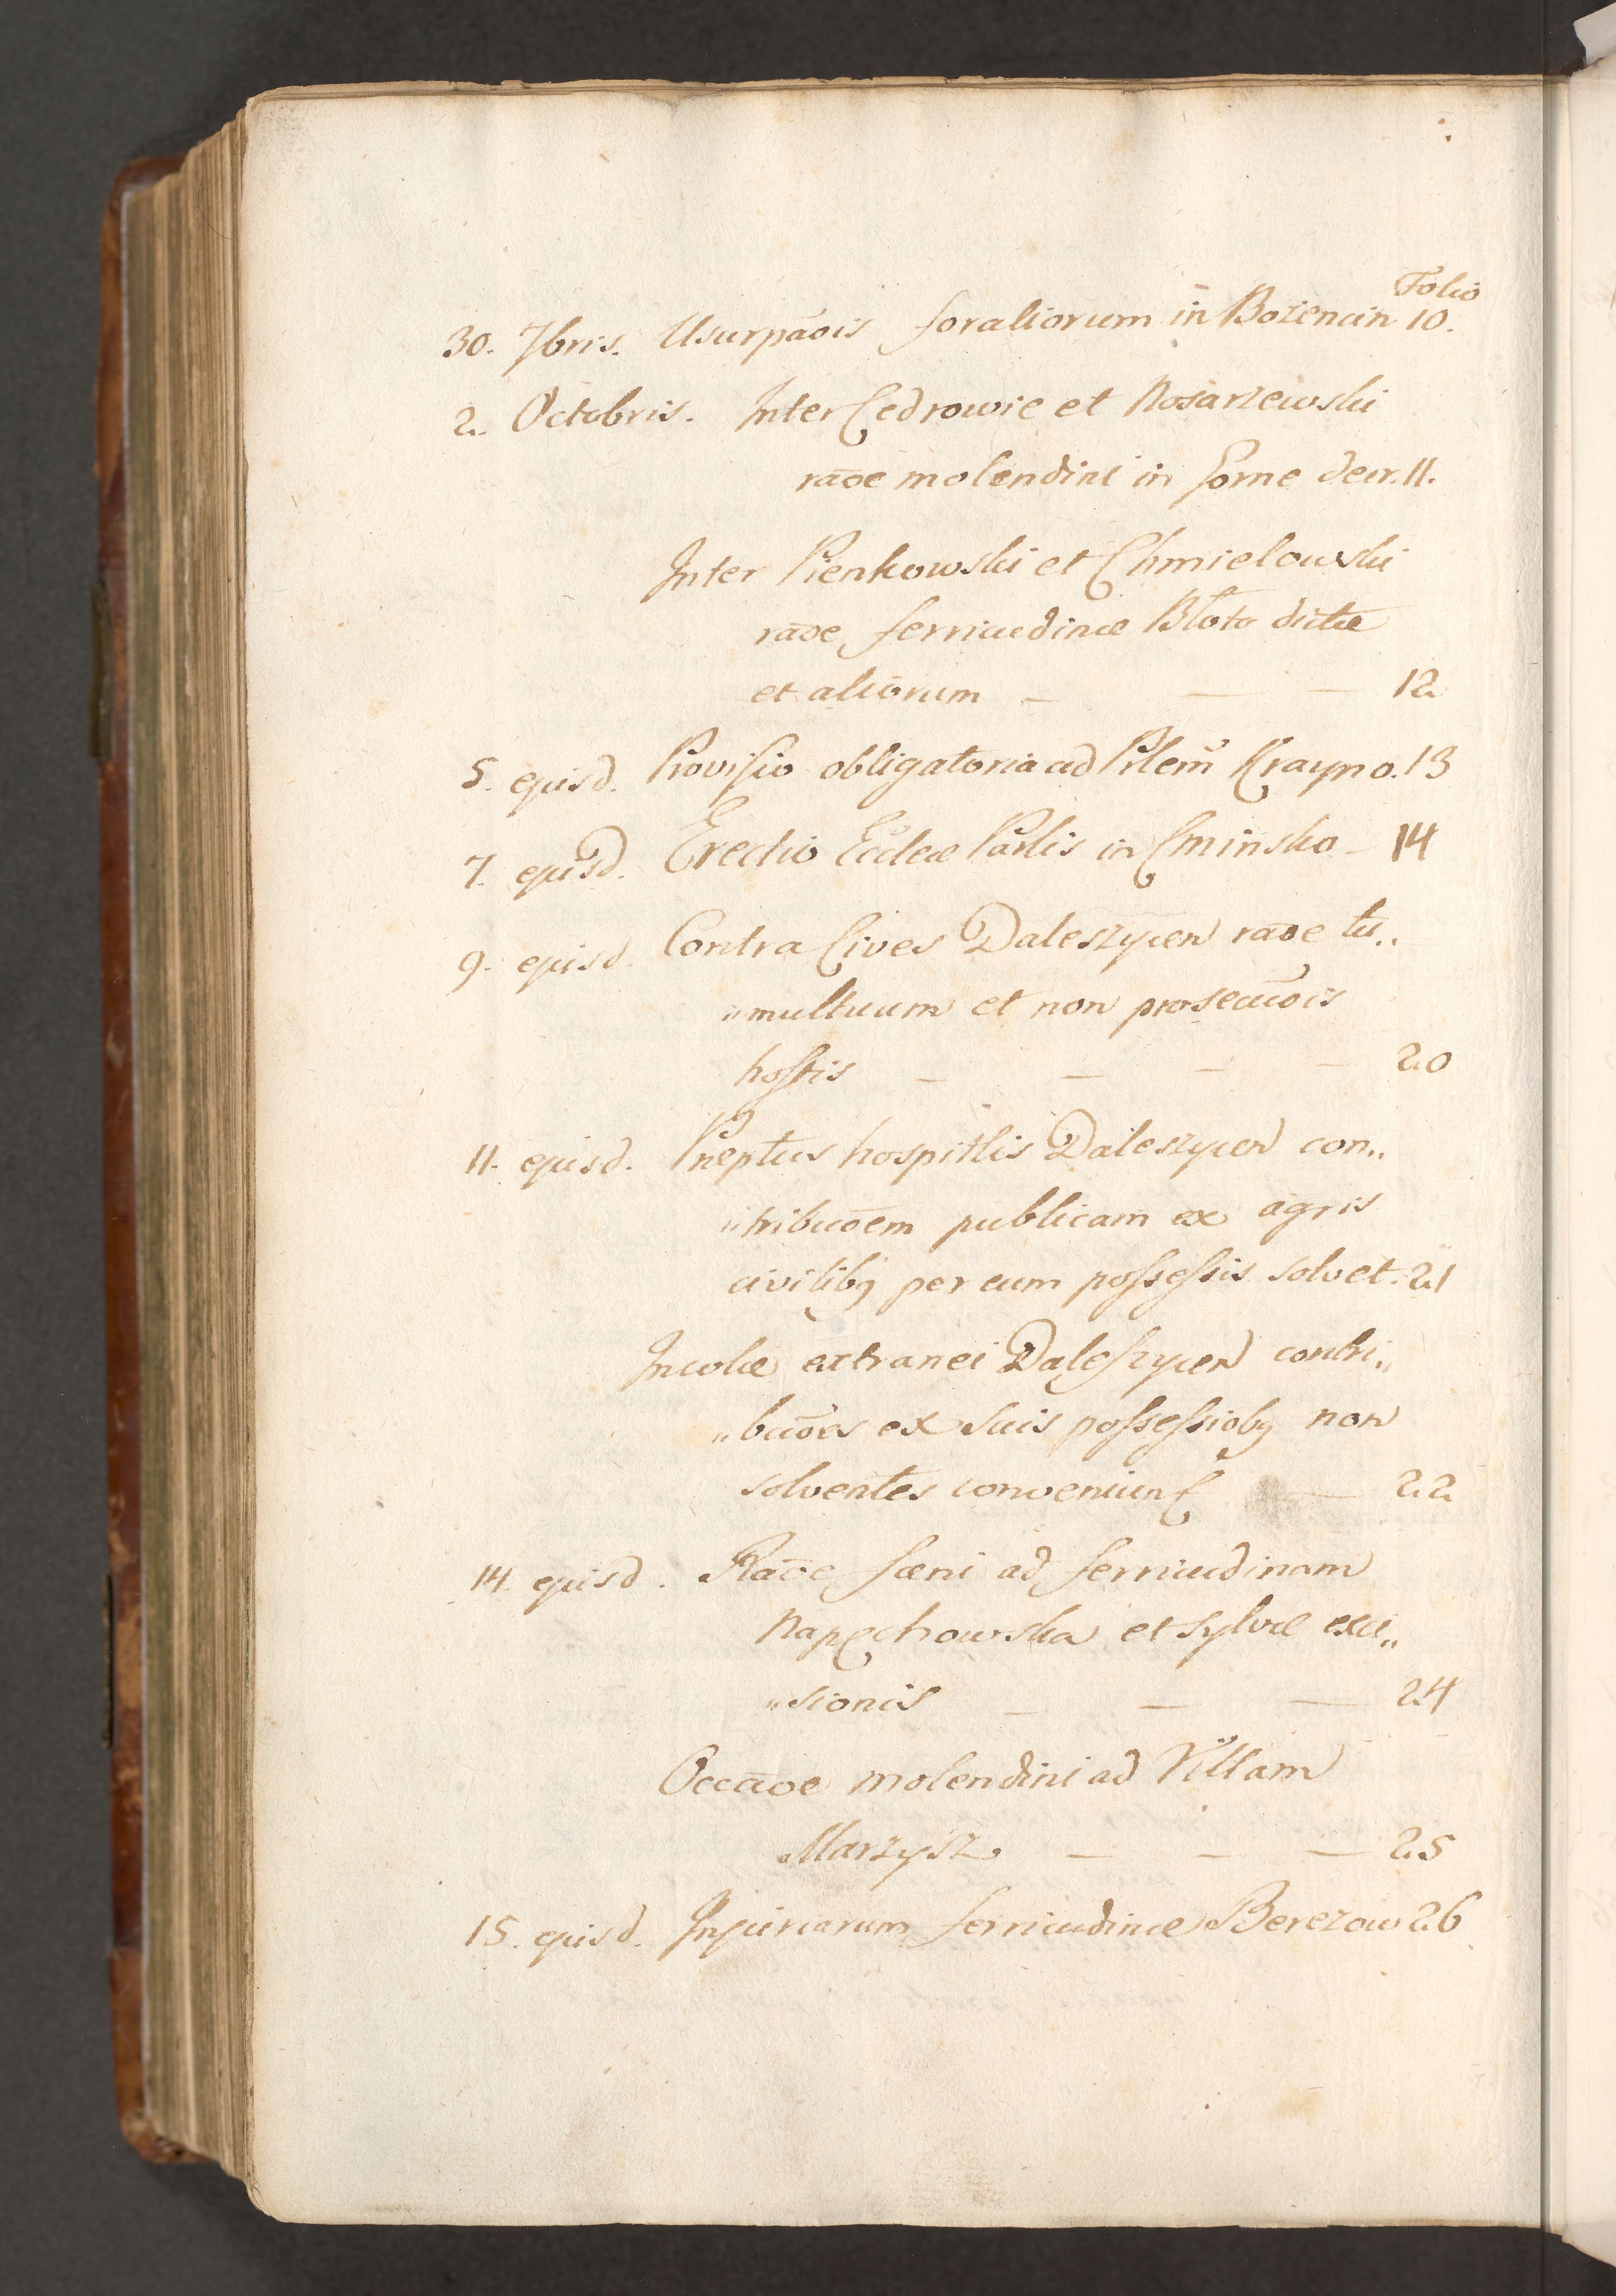 Folio
30. 7bris. Usurpāois foraliorum in Bozencin 10.
2. Octobris. Inter Cedrowie et Kosarzewski
rāoe molendini in Gorne decr. 11.
Inter Pienkowski et Chmielowski
rāoe ferricudinæ Błoto dictæ
et aliorum — — — 12
5. ejusd. Provisio obligatoria ad Prlem Krayno. 13
7. ejusd. Erectio Eccleæ Parlis in Cminsko — 14
9. ejusd. Contra Cives Daleszycen rāoe tu„
„multuum et non prosecuōis
hostis — — — — 20
11. ejusd. Præptus hospitlis Daleszycen con„
„tribuōem publicam ex agris
civilibq per eum possessis solvet. 21
Incolæ extranei Daleszycen contri„
„buōes ex suis possessiobq non
solventes conveniun — 22
14. ejusd. Rāoe fœni ad ferricudinam
Napęchowska et sylvæ exci„
„sionis — — — 24
Occāoe molendini ad Villam
Marzysz — — — 25
15. ejusd. Injuriarum ferricudinæ Berezow 26